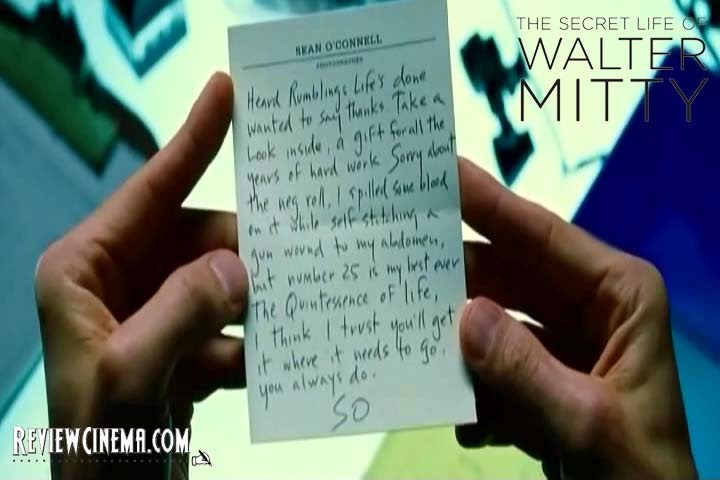 THE SECRET LIFE OF
WALTER
MITTY
SEAN O'CONNELL
PHOTOGRAPHER
Heard Rumblings Life's done
wanted to say thanks Take a
Look inside, a gift for all the
years of hard work Sorry about
the neg roll, I spilled some blood
on it while self stitching a
gun wound to my abdomen,
but number 25 is my best ever
The Quintessence of life,
I think I trust you'll get
it where it needs to go.
you always do.
SO
REVIEWCINEMA.COM